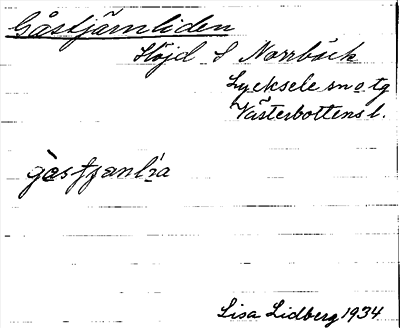 Gåstjärnliden
Höjd S Norrbäck
Lycksele sn o. tg
Västerbottens l.
Lisa Lidberg 1934